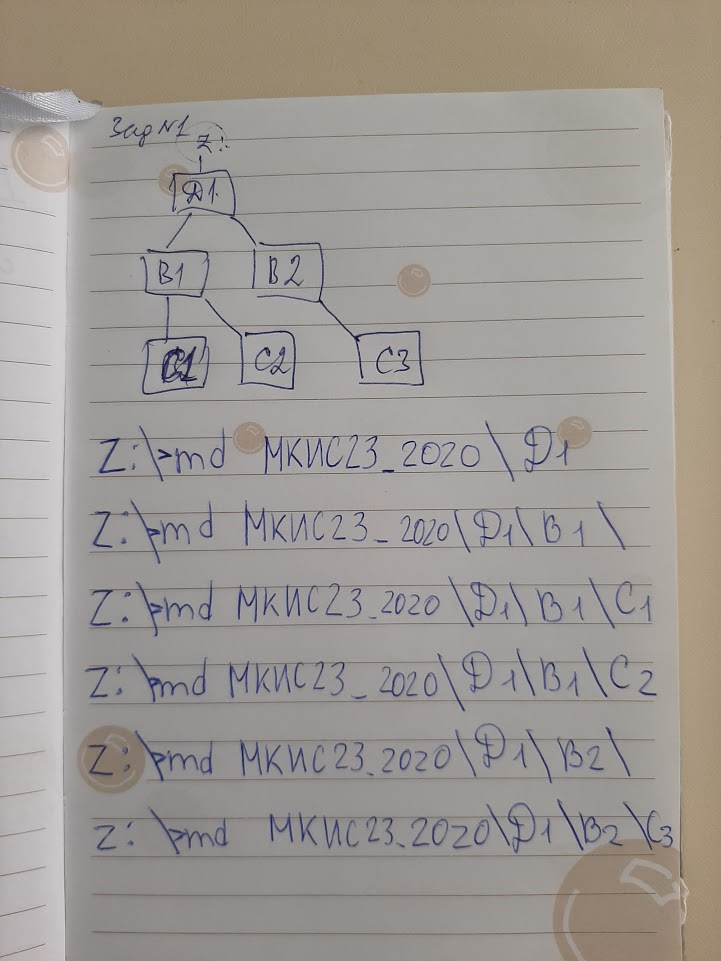 Зад №1
Z:
D1
B1 B2
C1 C2 C3
Z:\>md МКИС23_2020\D1
Z:\>md МКИС23_2020\D1\B1\
Z:\>md МКИС23_2020\D1\B1\C1
Z:\>md МКИС23_2020\D1\B1\C2
Z:\>md МКИС23_2020\D1\B2\
Z:\>md МКИС23_2020\D1\B2\C3